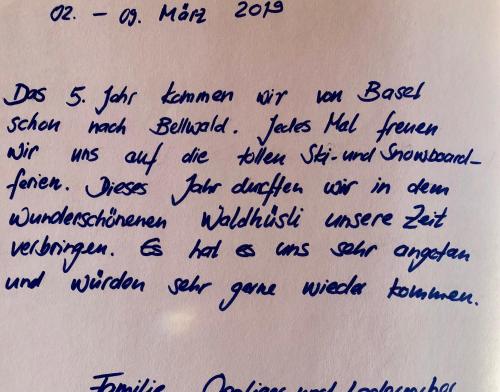 02. – 09. März 2019
Das 5. Jahr kommen wir von Basel
schon nach Bellwald. Jedes Mal freuen
wir uns auf die tollen Ski- und Snowboard-
ferien. Dieses Jahr durften wir in dem
wunderschönenen Waldhüsli unsere Zeit
verbringen. Es hat es uns sehr angetan
und würden sehr gerne wieder kommen.
Familie und